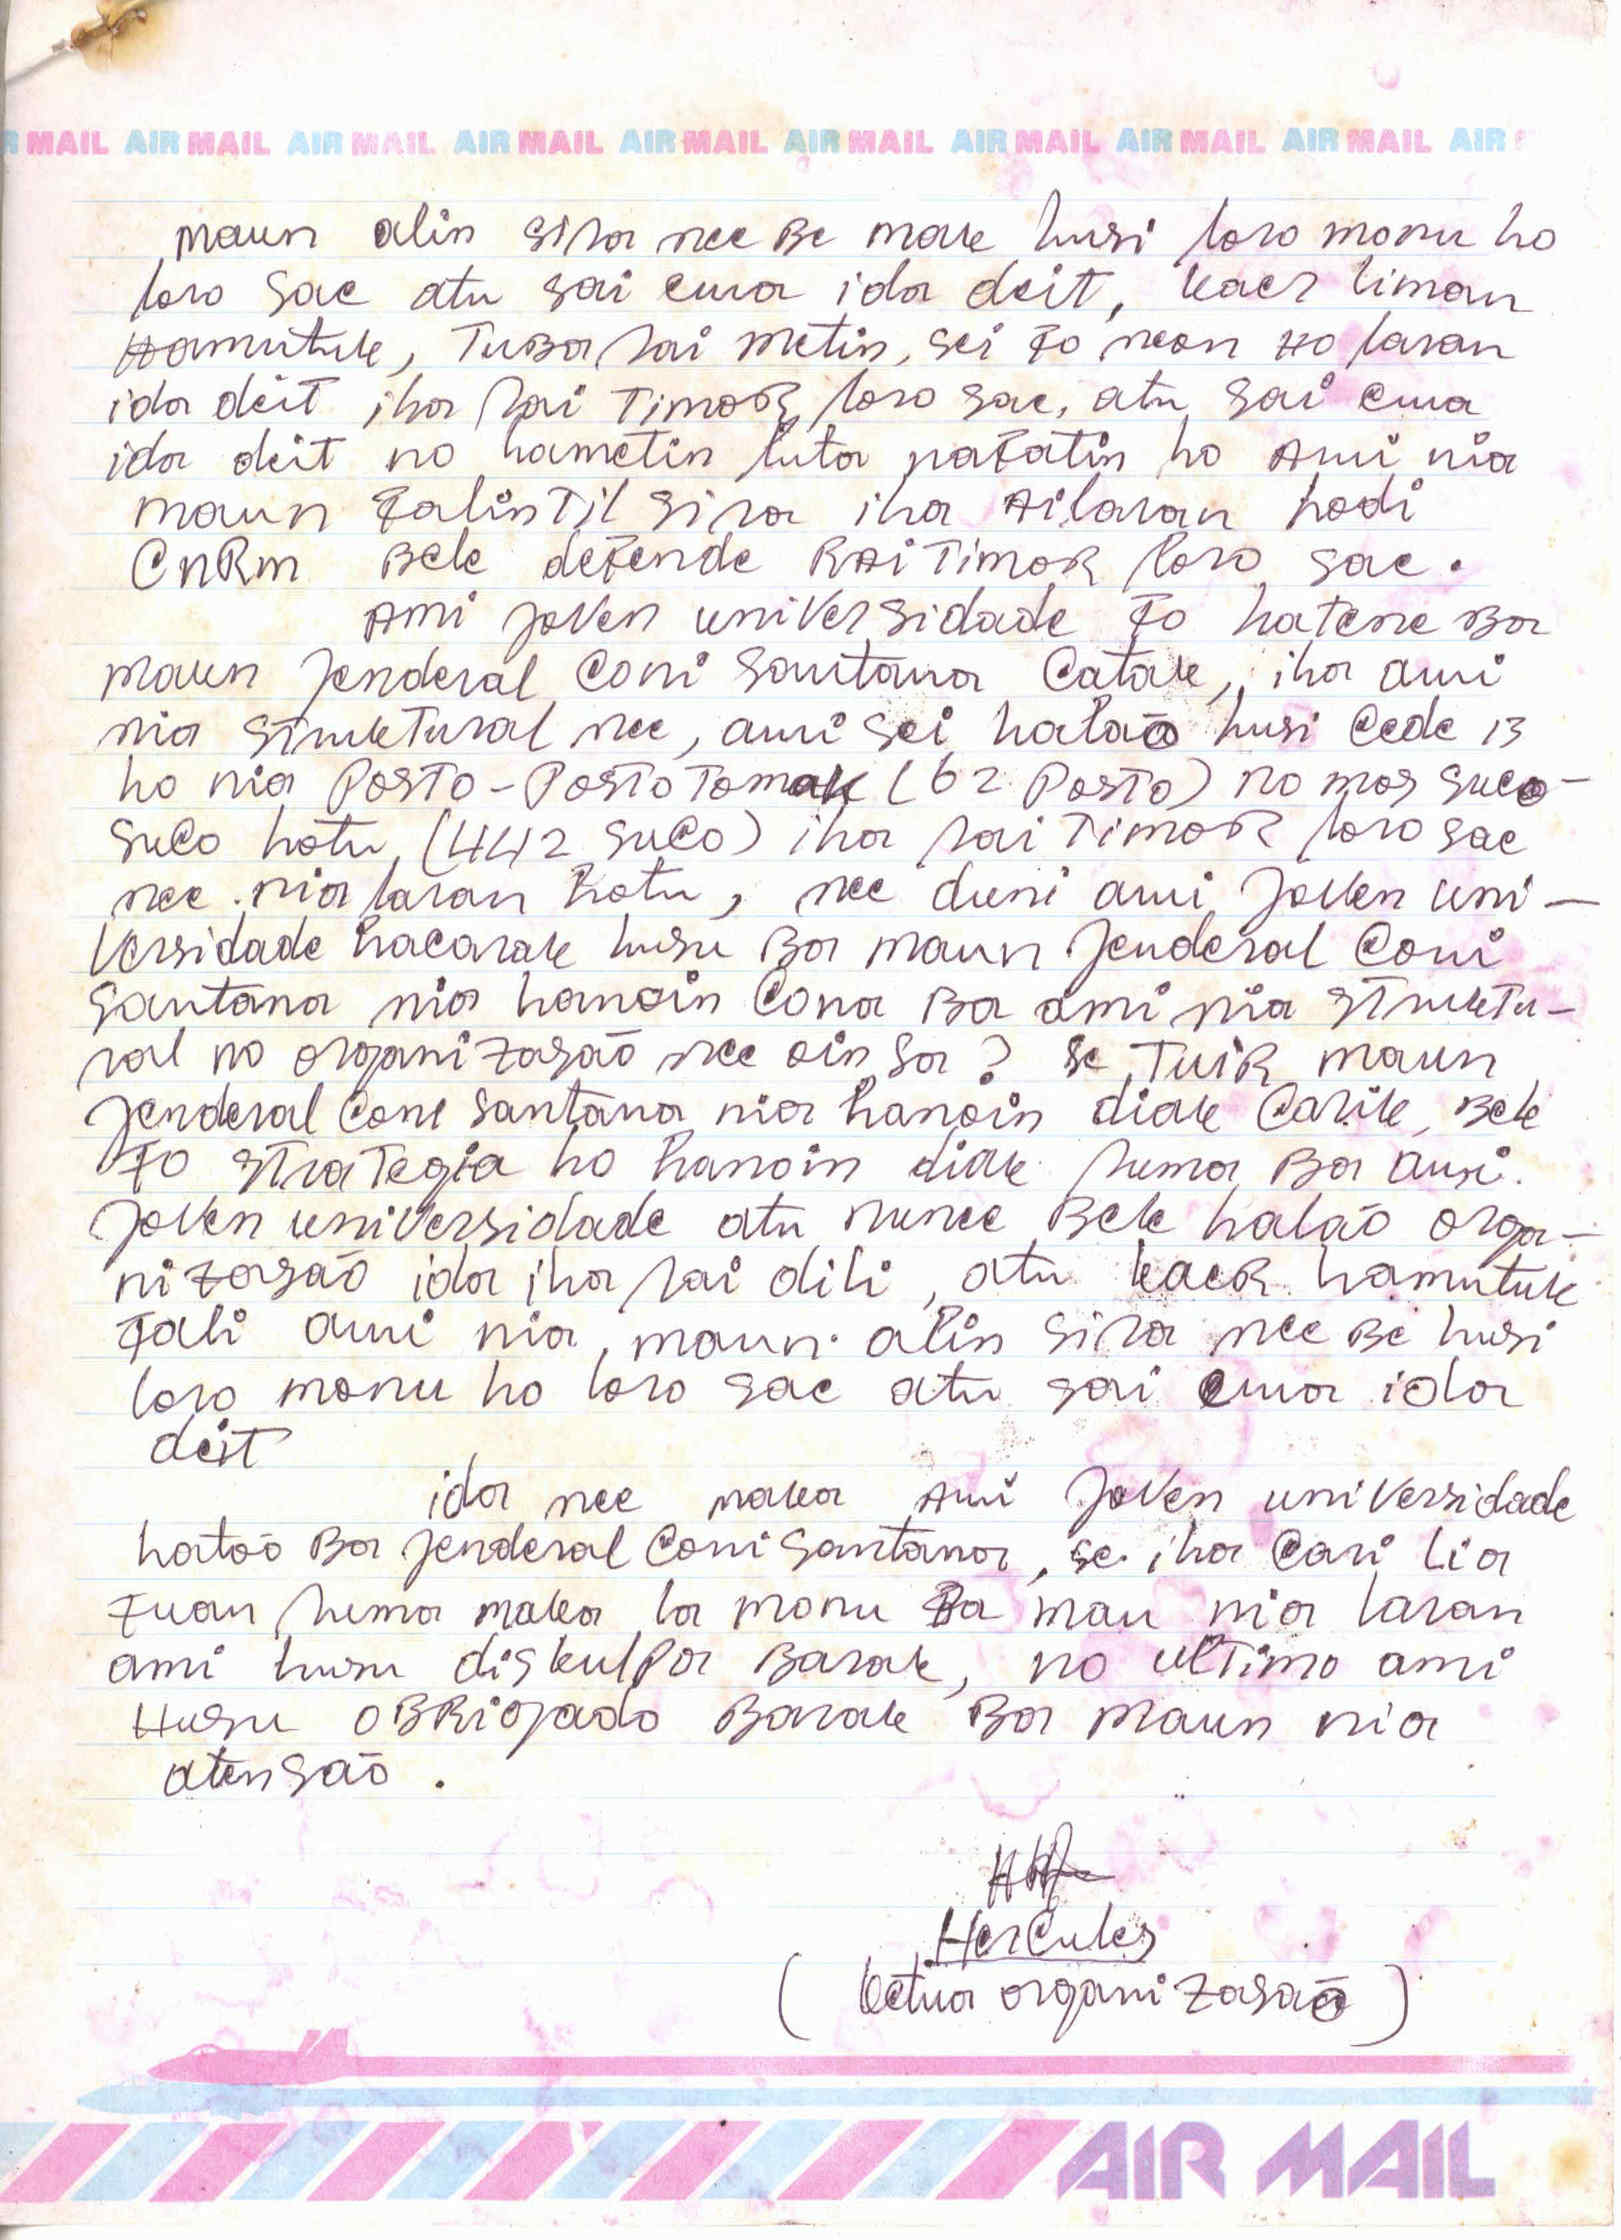 AIR MAIL AIR MAIL AIR MAIL AIR MAIL AIR MAIL AIR MAIL AIR MAIL AIR MAIL AIR
maun alin sira nee Be mak husi loro monu ho
loro sae atu sai ema ida deit, kaer liman
Hamutuk, TuBa rai metin, sei Fo neon Ho laran
ida deit iha rai TimoR loro sae, atu sai ema
ida deit no hametin luta naFatin ho Ami nia
maun FalinTil sira iha Ailaran hodi
CnRm Bele deFende RAi TimoR loro sae.
Ami joven universidade Fo hatene Ba
maun jenderal Coni Santana Catak, iha ami
nia STrukTural nee, ami sei halaō husi Cede 13
ho nia PosTo-PosTo Tomak (62 PosTo) no mos suco-
suco hotu (442 suCo) iha rai TimoR loro sae
nee nia laran hotu, nee duni ami joven uni-
versidade hacarak husu Ba maun jenderal Coni
Santana nia hanoin Cona Ba ami nia STrukTu-
ral no organizasaō nee oin sa? se TuiR maun
jenderal Coni Santana nia hanoin diak Carik, Bele
Fo STraTegia ho hanoin diak ruma Ba ami
joven universidade atu nunee Bele halaō orga-
nizasaō ida iha rai dili, atu kaeR hamutuk
Fali ami nia maun alin sira nee Be husi
loro monu ho loro sae atu sai ema ida
deit
ida nee maka Ami joven universidade
hatoō Ba jenderal Coni Santana, se iha Cari lia
Fuan ruma maka la monu Ba mau nia laran
ami husu diskulPa Barak, no ulTimo ami
Husu oBRigado Barak Ba maun nia
atensaō.
Hercules
(ketua organizasaō)
AIR MAIL